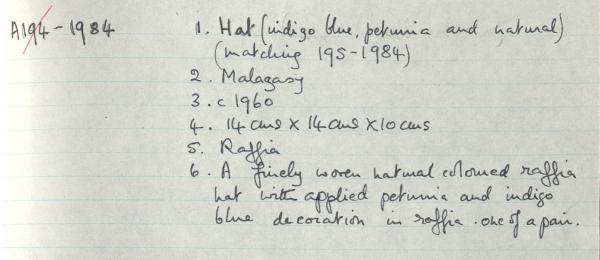 A194-1984
1. Hat (indigo blue, petunia and natural)
(matching 195-1984)
2. Malagasy
3. c 1960
4. 14 cms x 14 cms x 10 cms
5. Raffia
6. A finely woven natural coloured raffia
hat with applied petunia and indigo
blue decoration in raffia. one of a pair.